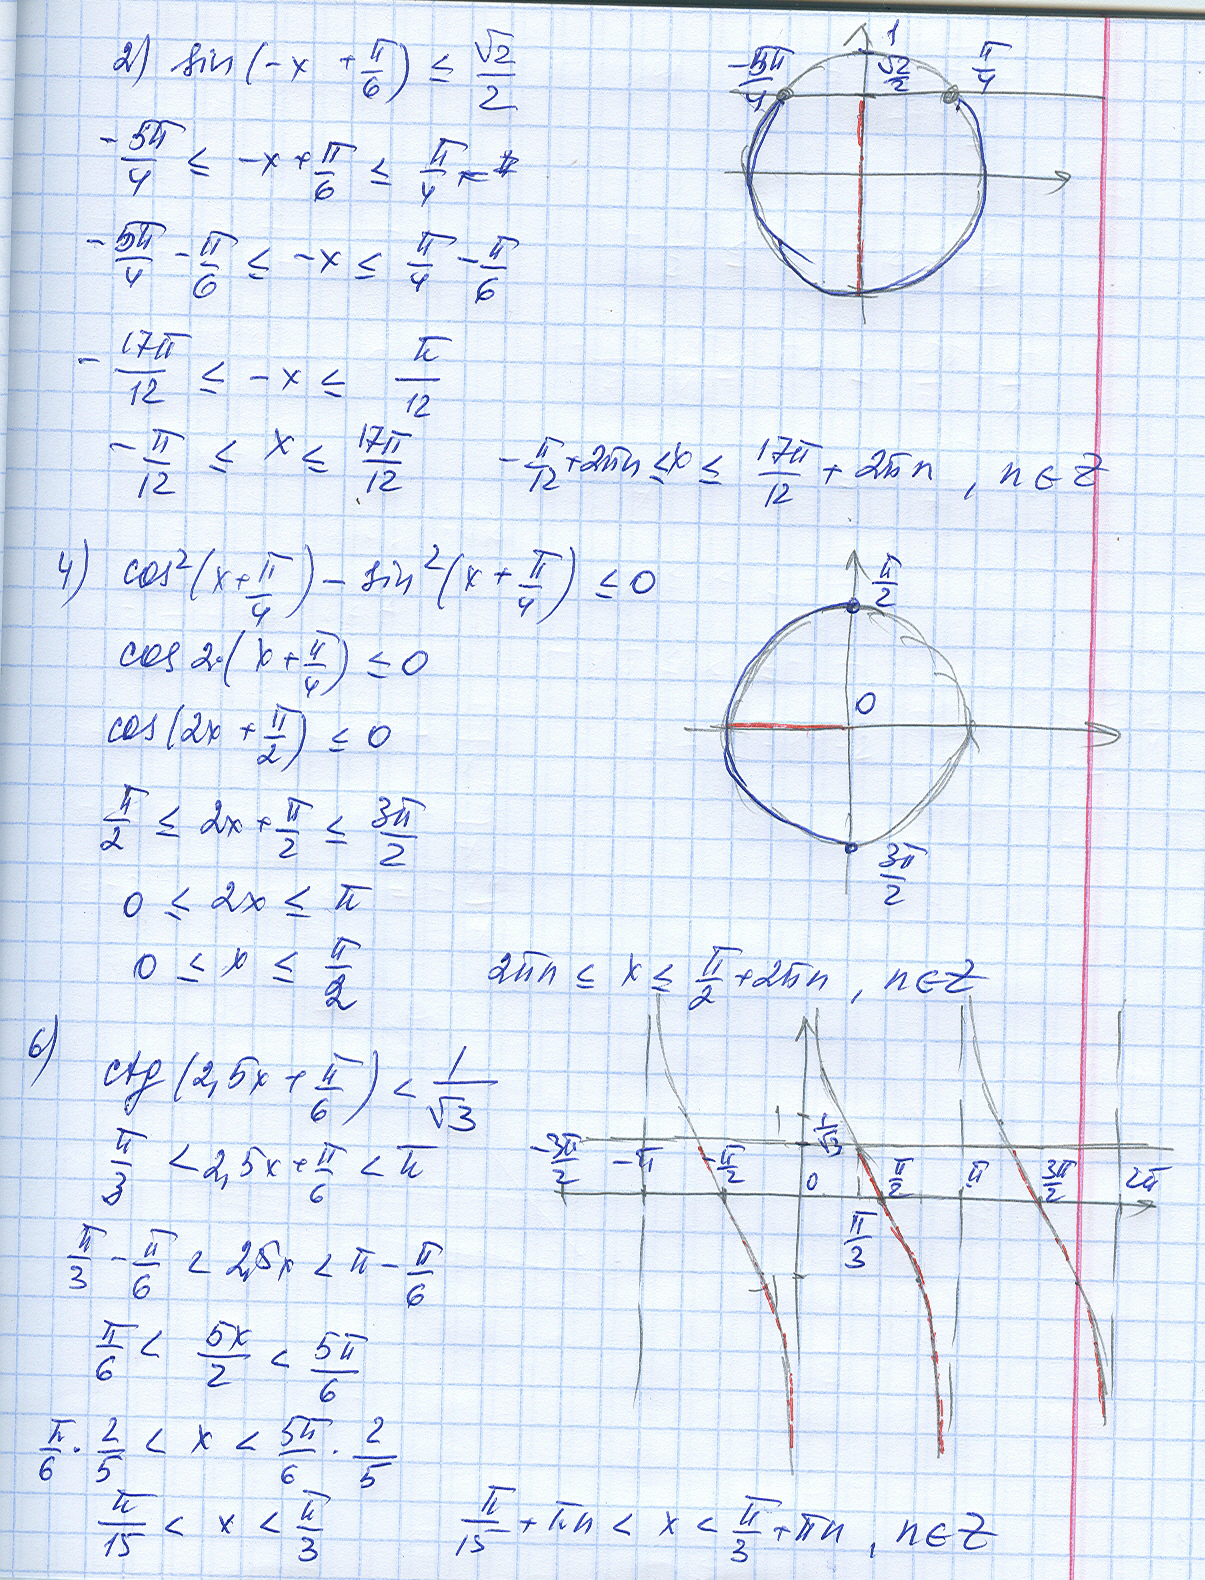 2) sin(-x + π/6) ≤ √2/2
-5π/4 ≤ -x + π/6 ≤ π/4
-5π/4 - π/6 ≤ -x ≤ π/4 - π/6
-17π/12 ≤ -x ≤ π/12
-π/12 ≤ x ≤ 17π/12    -π/12 + 2πn ≤ x ≤ 17π/12 + 2πn, n∈Z
-5π/4 1 √2/2 π/4
4) cos²(x + π/4) - sin²(x + π/4) ≤ 0
cos 2·(x + π/4) ≤ 0
cos(2x + π/2) ≤ 0
π/2 ≤ 2x + π/2 ≤ 3π/2
0 ≤ 2x ≤ π
0 ≤ x ≤ π/2    2πn ≤ x ≤ π/2 + 2πn, n∈Z
π/2
0
3π/2
6) ctg(2,5x + π/6) < 1/√3
π/3 < 2,5x + π/6 < π
π/3 - π/6 < 2,5x < π - π/6
π/6 < 5x/2 < 5π/6
π/6 · 2/5 < x < 5π/6 · 2/5
π/15 < x < π/3    π/15 + πn < x < π/3 + πn, n∈Z
1 1/√3
-3π/2 -π -π/2 0 π/2 π 3π/2 2π
π/3
-1